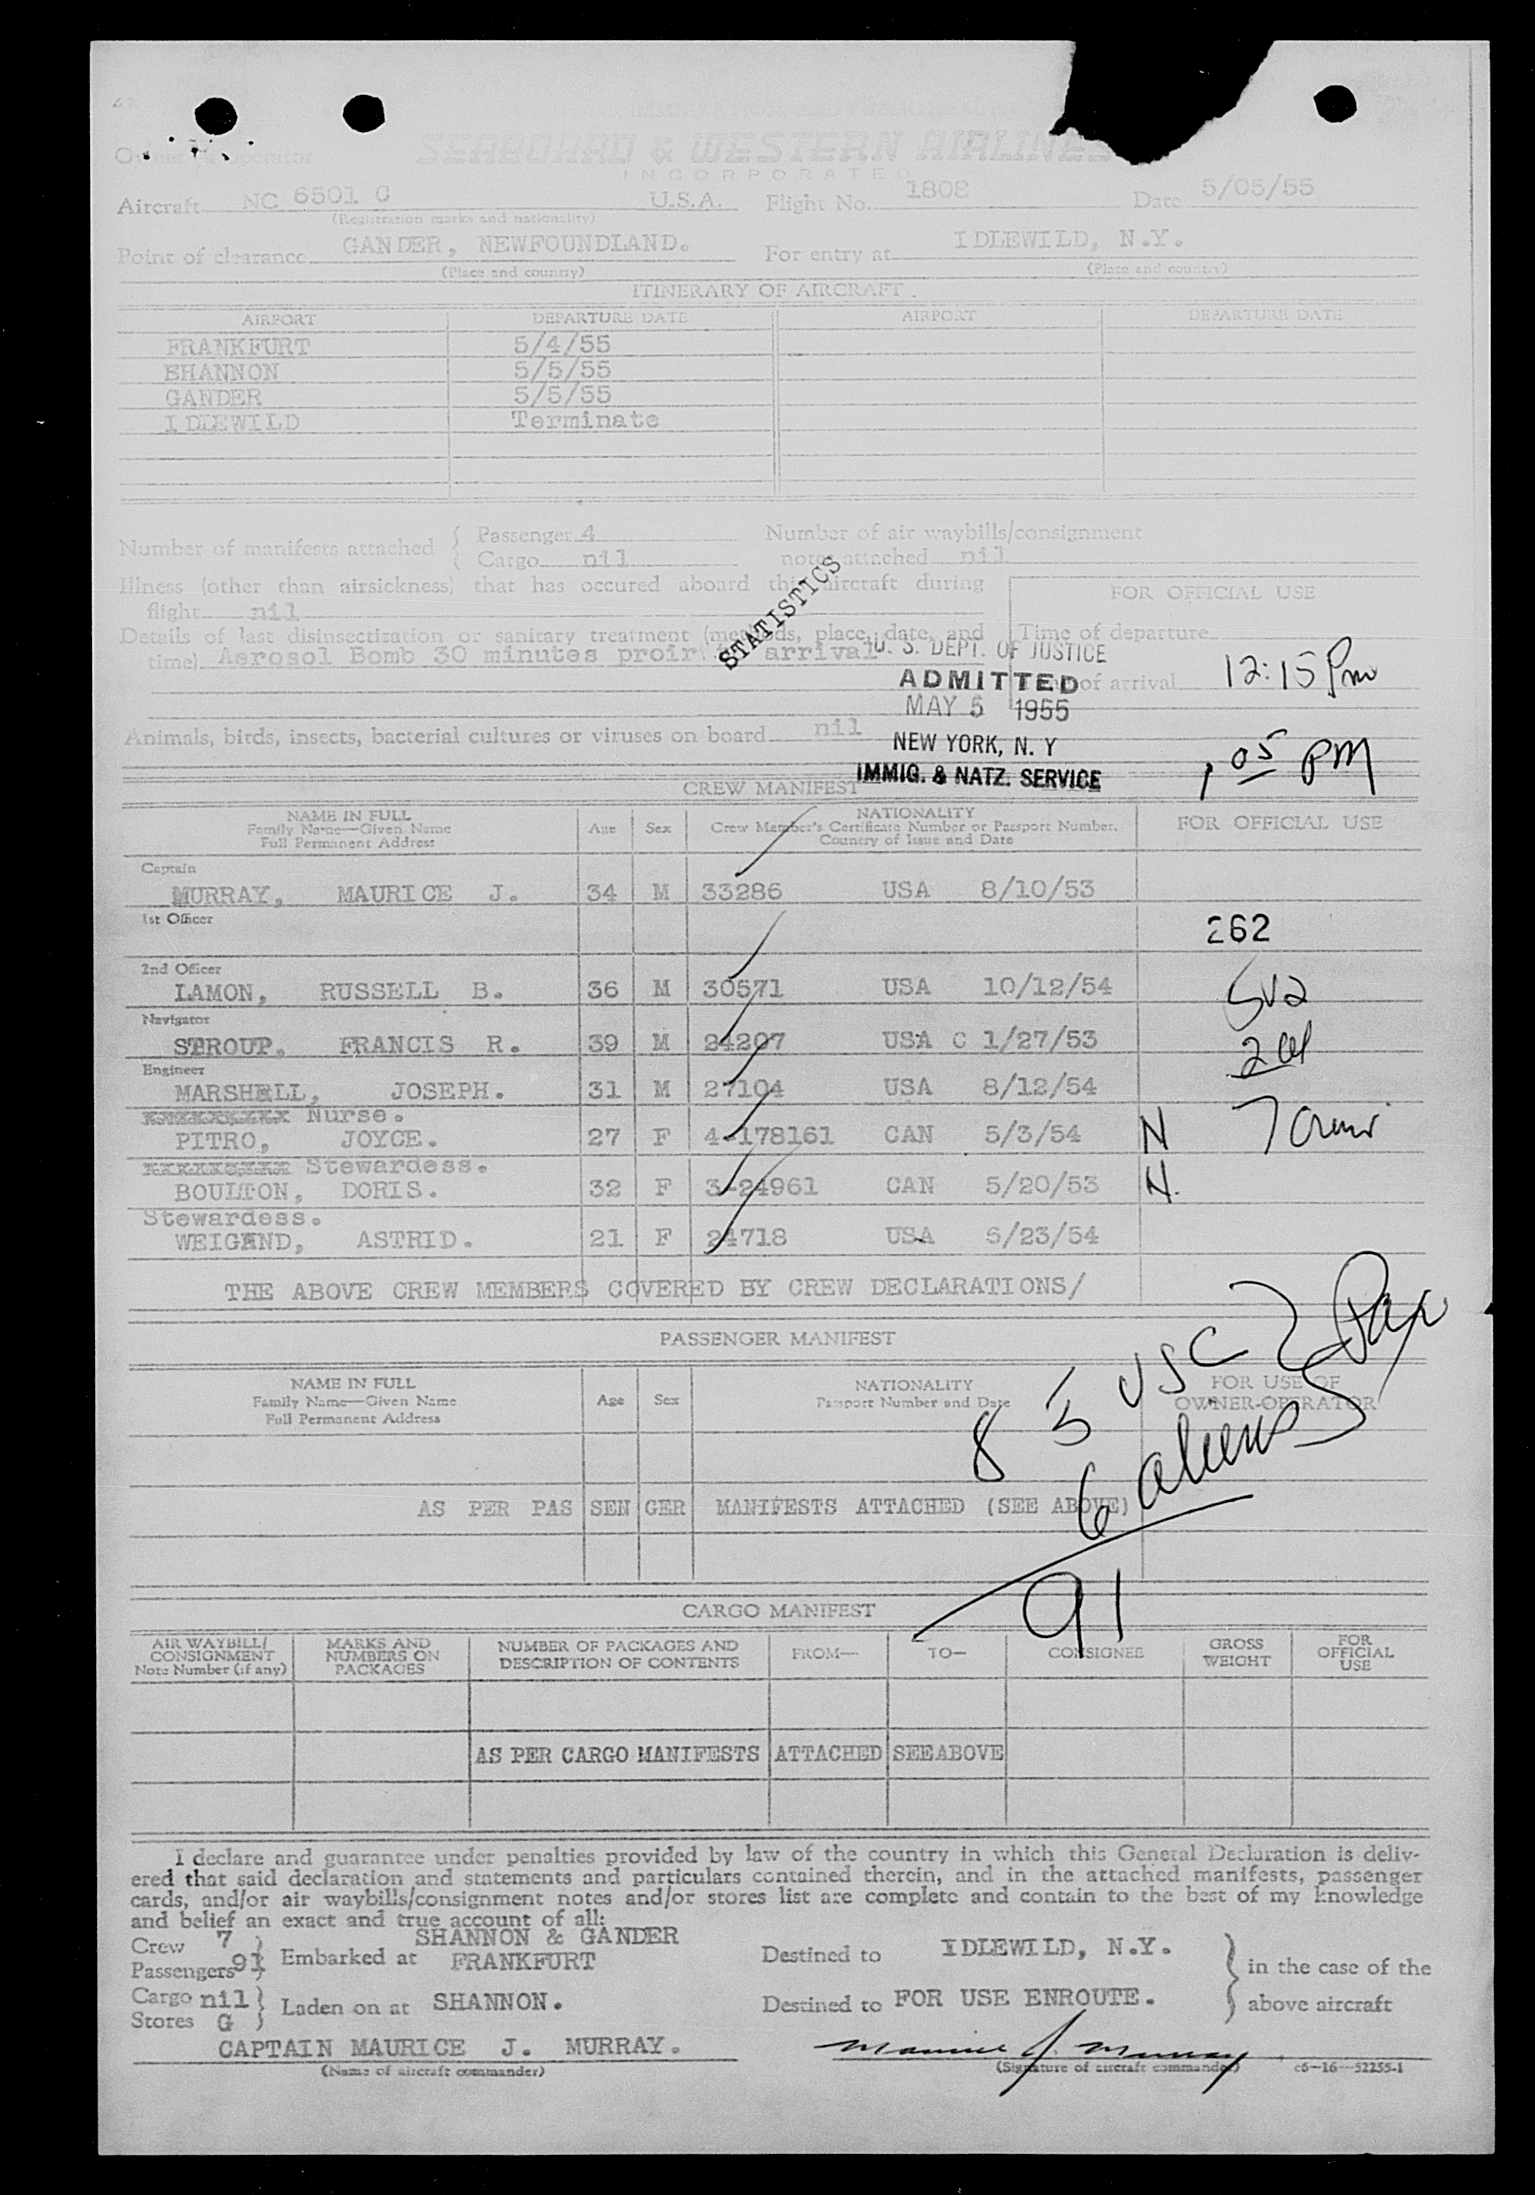 SEABOARD & WESTERN AIRLINES
INCORPORATED
Aircraft NC 6501 C U.S.A. Flight No. 1808 Date 5/05/55
(Registration marks and nationality)
Point of clearance GANDER, NEWFOUNDLAND. For entry at IDLEWILD, N.Y.
(Place and country) (Place and country)
ITINERARY OF AIRCRAFT
AIRPORT DEPARTURE DATE AIRPORT DEPARTURE DATE
FRANKFURT 5/4/55
SHANNON 5/5/55
GANDER 5/5/55
IDLEWILD Terminate
Number of manifests attached { Passenger 4 Number of air waybills/consignment
Cargo nil notes attached nil
Illness (other than airsickness) that has occured aboard this aircraft during
flight nil
FOR OFFICIAL USE
STATISTICS
Details of last disinsectization or sanitary treatment (methods, place, date, and
time) Aerosol Bomb 30 minutes proir to arrival
Time of departure
U. S. DEPT. OF JUSTICE
ADMITTED
of arrival 12:15 Pm
MAY 5 1955
Animals, birds, insects, bacterial cultures or viruses on board nil
NEW YORK, N. Y
1 05 PM
IMMIG. & NATZ. SERVICE
CREW MANIFEST
NAME IN FULL Age Sex NATIONALITY FOR OFFICIAL USE
Family Name—Given Name Crew Member's Certificate Number or Passport Number.
Full Permanent Address Country of Issue and Date
Captain
MURRAY, MAURICE J. 34 M 33286 USA 8/10/53
1st Officer
262
2nd Officer
LAMON, RUSSELL B. 36 M 30571 USA 10/12/54
Navigator
STROUP. FRANCIS R. 39 M 24207 USA C 1/27/53
Engineer
MARSHALL, JOSEPH. 31 M 27104 USA 8/12/54
Nurse.
PITRO, JOYCE. 27 F 4-178161 CAN 5/3/54 N 7 Crew
Stewardess.
BOULTON, DORIS. 32 F 3-24961 CAN 5/20/53 N.
Stewardess.
WEIGAND, ASTRID. 21 F 24718 USA 6/23/54
THE ABOVE CREW MEMBERS COVERED BY CREW DECLARATIONS/
PASSENGER MANIFEST
85 USC Pax
NAME IN FULL Age Sex NATIONALITY FOR USE OF
Family Name—Given Name Passport Number and Date OWNER-OPERATOR
Full Permanent Address
6 aliens
AS PER PAS SEN GER MANIFESTS ATTACHED (SEE ABOVE)
91
CARGO MANIFEST
AIR WAYBILL/ MARKS AND NUMBER OF PACKAGES AND FROM— TO— CONSIGNEE GROSS FOR
CONSIGNMENT NUMBERS ON DESCRIPTION OF CONTENTS WEIGHT OFFICIAL
Note Number (if any) PACKAGES USE
AS PER CARGO MANIFESTS ATTACHED SEE ABOVE
I declare and guarantee under penalties provided by law of the country in which this General Declaration is deliv-
ered that said declaration and statements and particulars contained therein, and in the attached manifests, passenger
cards, and/or air waybills/consignment notes and/or stores list are complete and contain to the best of my knowledge
and belief an exact and true account of all:
Crew 7 SHANNON & GANDER
Passengers 91 } Embarked at FRANKFURT Destined to IDLEWILD, N.Y. } in the case of the
Cargo nil } Laden on at SHANNON. Destined to FOR USE ENROUTE. above aircraft
Stores G
CAPTAIN MAURICE J. MURRAY. Maurice J. Murray
(Name of aircraft commander) (Signature of aircraft commander) c6—16—52255-1